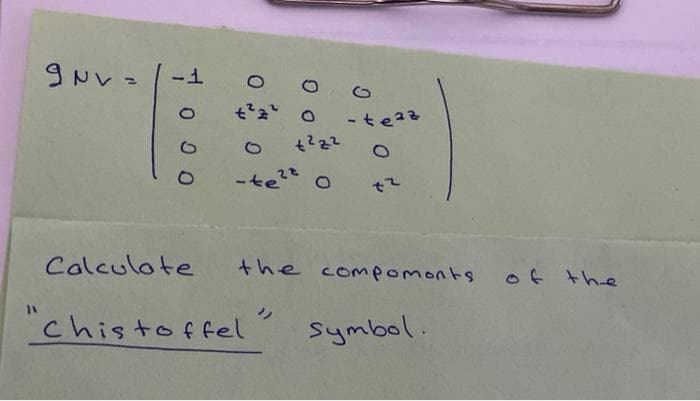 gNV = ( -1 0 0 0
0 t²z² 0 -te²ᶻ
0 0 t²z² 0
0 -te²ᶻ 0 t² )
Calculate the compoments of the
"chistoffel" symbol.